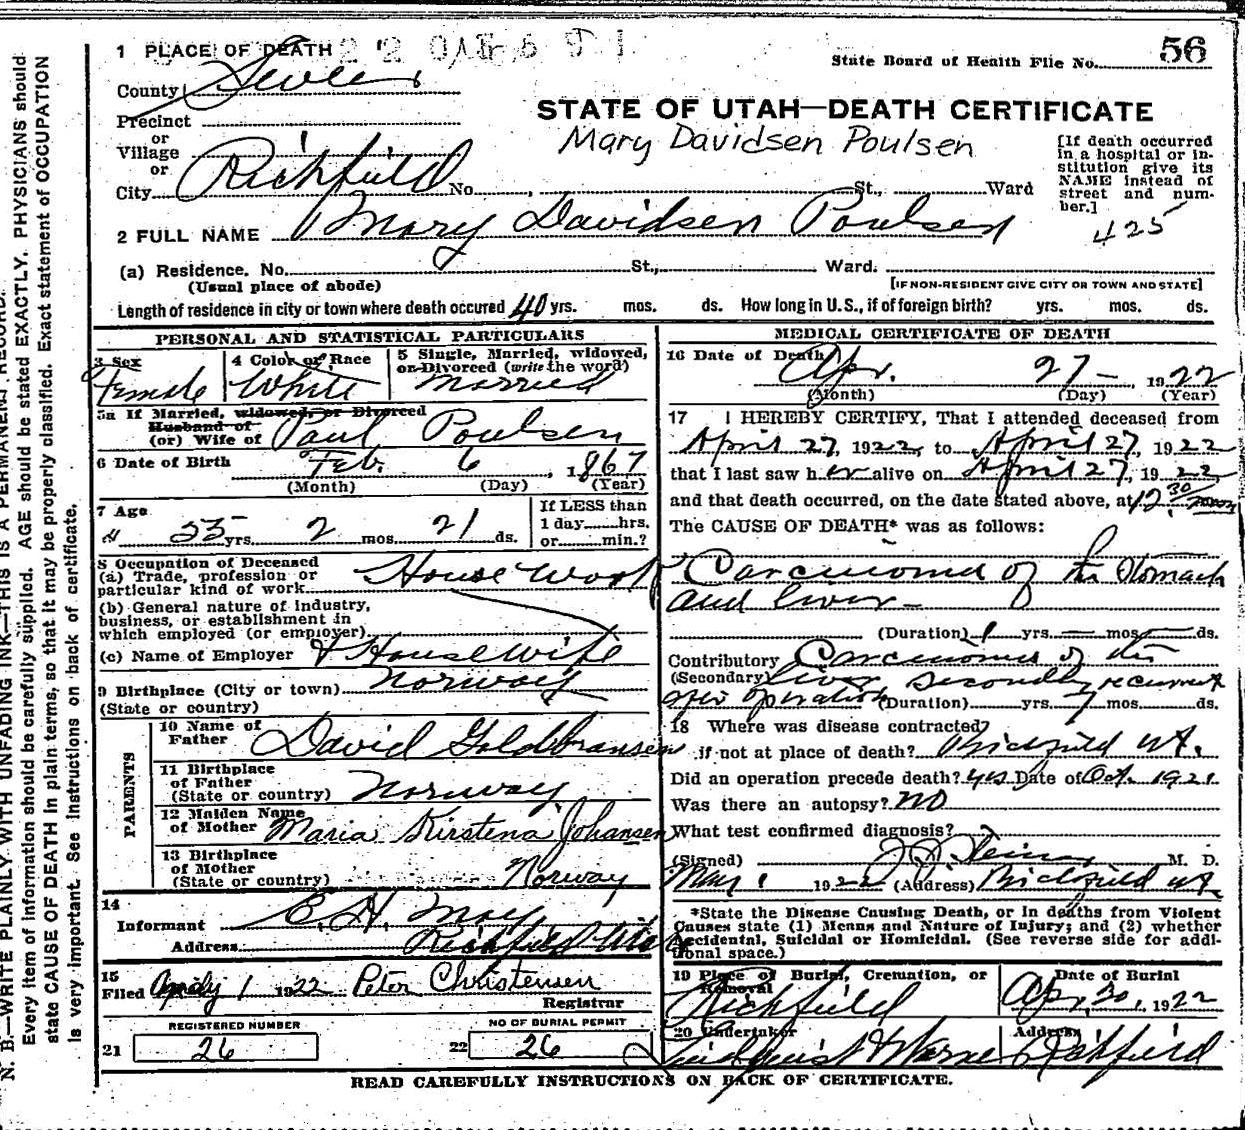 1 PLACE OF DEATH
State Board of Health File No. 56
County Sevier
Precinct
or
Village
or
City Richfield No. St., Ward
STATE OF UTAH—DEATH CERTIFICATE
Mary Davidsen Poulsen
[If death occurred in a hospital or institution give its NAME instead of street and number.]
425
2 FULL NAME Mary Davidsen Poulsen
(a) Residence. No. St., Ward.
(Usual place of abode) [IF NON-RESIDENT GIVE CITY OR TOWN AND STATE]
Length of residence in city or town where death occured 40 yrs. mos. ds. How long in U.S., if of foreign birth? yrs. mos. ds.
PERSONAL AND STATISTICAL PARTICULARS
3 Sex Female
4 Color or Race White
5 Single, Married, widowed, or Divorced (write the word) Married
5a If Married, widowed, or Divorced
Husband of
(or) Wife of Paul Poulsen
6 Date of Birth Feb. 6, 1867
(Month) (Day) (Year)
7 Age 55 yrs. 2 mos. 21 ds.
If LESS than
1 day hrs.
or min.?
8 Occupation of Deceased
(a) Trade, profession or
particular kind of work House Work
(b) General nature of industry,
business, or establishment in
which employed (or employer)
(c) Name of Employer Housewife
9 Birthplace (City or town) Norway
(State or country)
PARENTS
10 Name of
Father David Goldbransen
11 Birthplace
of Father
(State or country) Norway
12 Maiden Name
of Mother Maria Kirstena Johansen
13 Birthplace
of Mother
(State or country) Norway
14
Informant E. H.
Address Richfield Utah
15
Filed 1 1922 Peter Christensen
Registrar
REGISTERED NUMBER
21 26
NO OF BURIAL PERMIT
22 26
MEDICAL CERTIFICATE OF DEATH
16 Date of Death Apr. 27, 1922
(Month) (Day) (Year)
17 I HEREBY CERTIFY, That I attended deceased from
April 27, 1922, to April 27, 1922
that I last saw her alive on April 27, 1922
and that death occurred, on the date stated above, at 12 30
The CAUSE OF DEATH* was as follows:
Carcinoma of the Stomach
and liver
(Duration) 1 yrs. mos. ds.
Contributory Carcinoma of the
(Secondary) liver secondly recurrent
after operation (Duration) yrs. 7 mos. ds.
18 Where was disease contracted
if not at place of death? Richfield Ut.
Did an operation precede death? yes Date of Oct. 1921
Was there an autopsy? no
What test confirmed diagnosis?
(Signed) M. D.
May 1 1922 (Address) Richfield Ut.
*State the Disease Causing Death, or in deaths from Violent
Causes state (1) Means and Nature of Injury; and (2) whether
Accidental, Suicidal or Homicidal. (See reverse side for addi-
tional space.)
19 Place of Burial, Cremation, or
Removal
Richfield
Date of Burial
Apr. 30, 1922
20 Undertaker
Address
Richfield
READ CAREFULLY INSTRUCTIONS ON BACK OF CERTIFICATE.
N. B.—WRITE PLAINLY WITH UNFADING INK—THIS IS A PERMANENT RECORD.
Every item of information should be carefully supplied. AGE should be stated EXACTLY. PHYSICIANS should
state CAUSE OF DEATH in plain terms, so that it may be properly classified. Exact statement of OCCUPATION
is very important. See instructions on back of certificate.